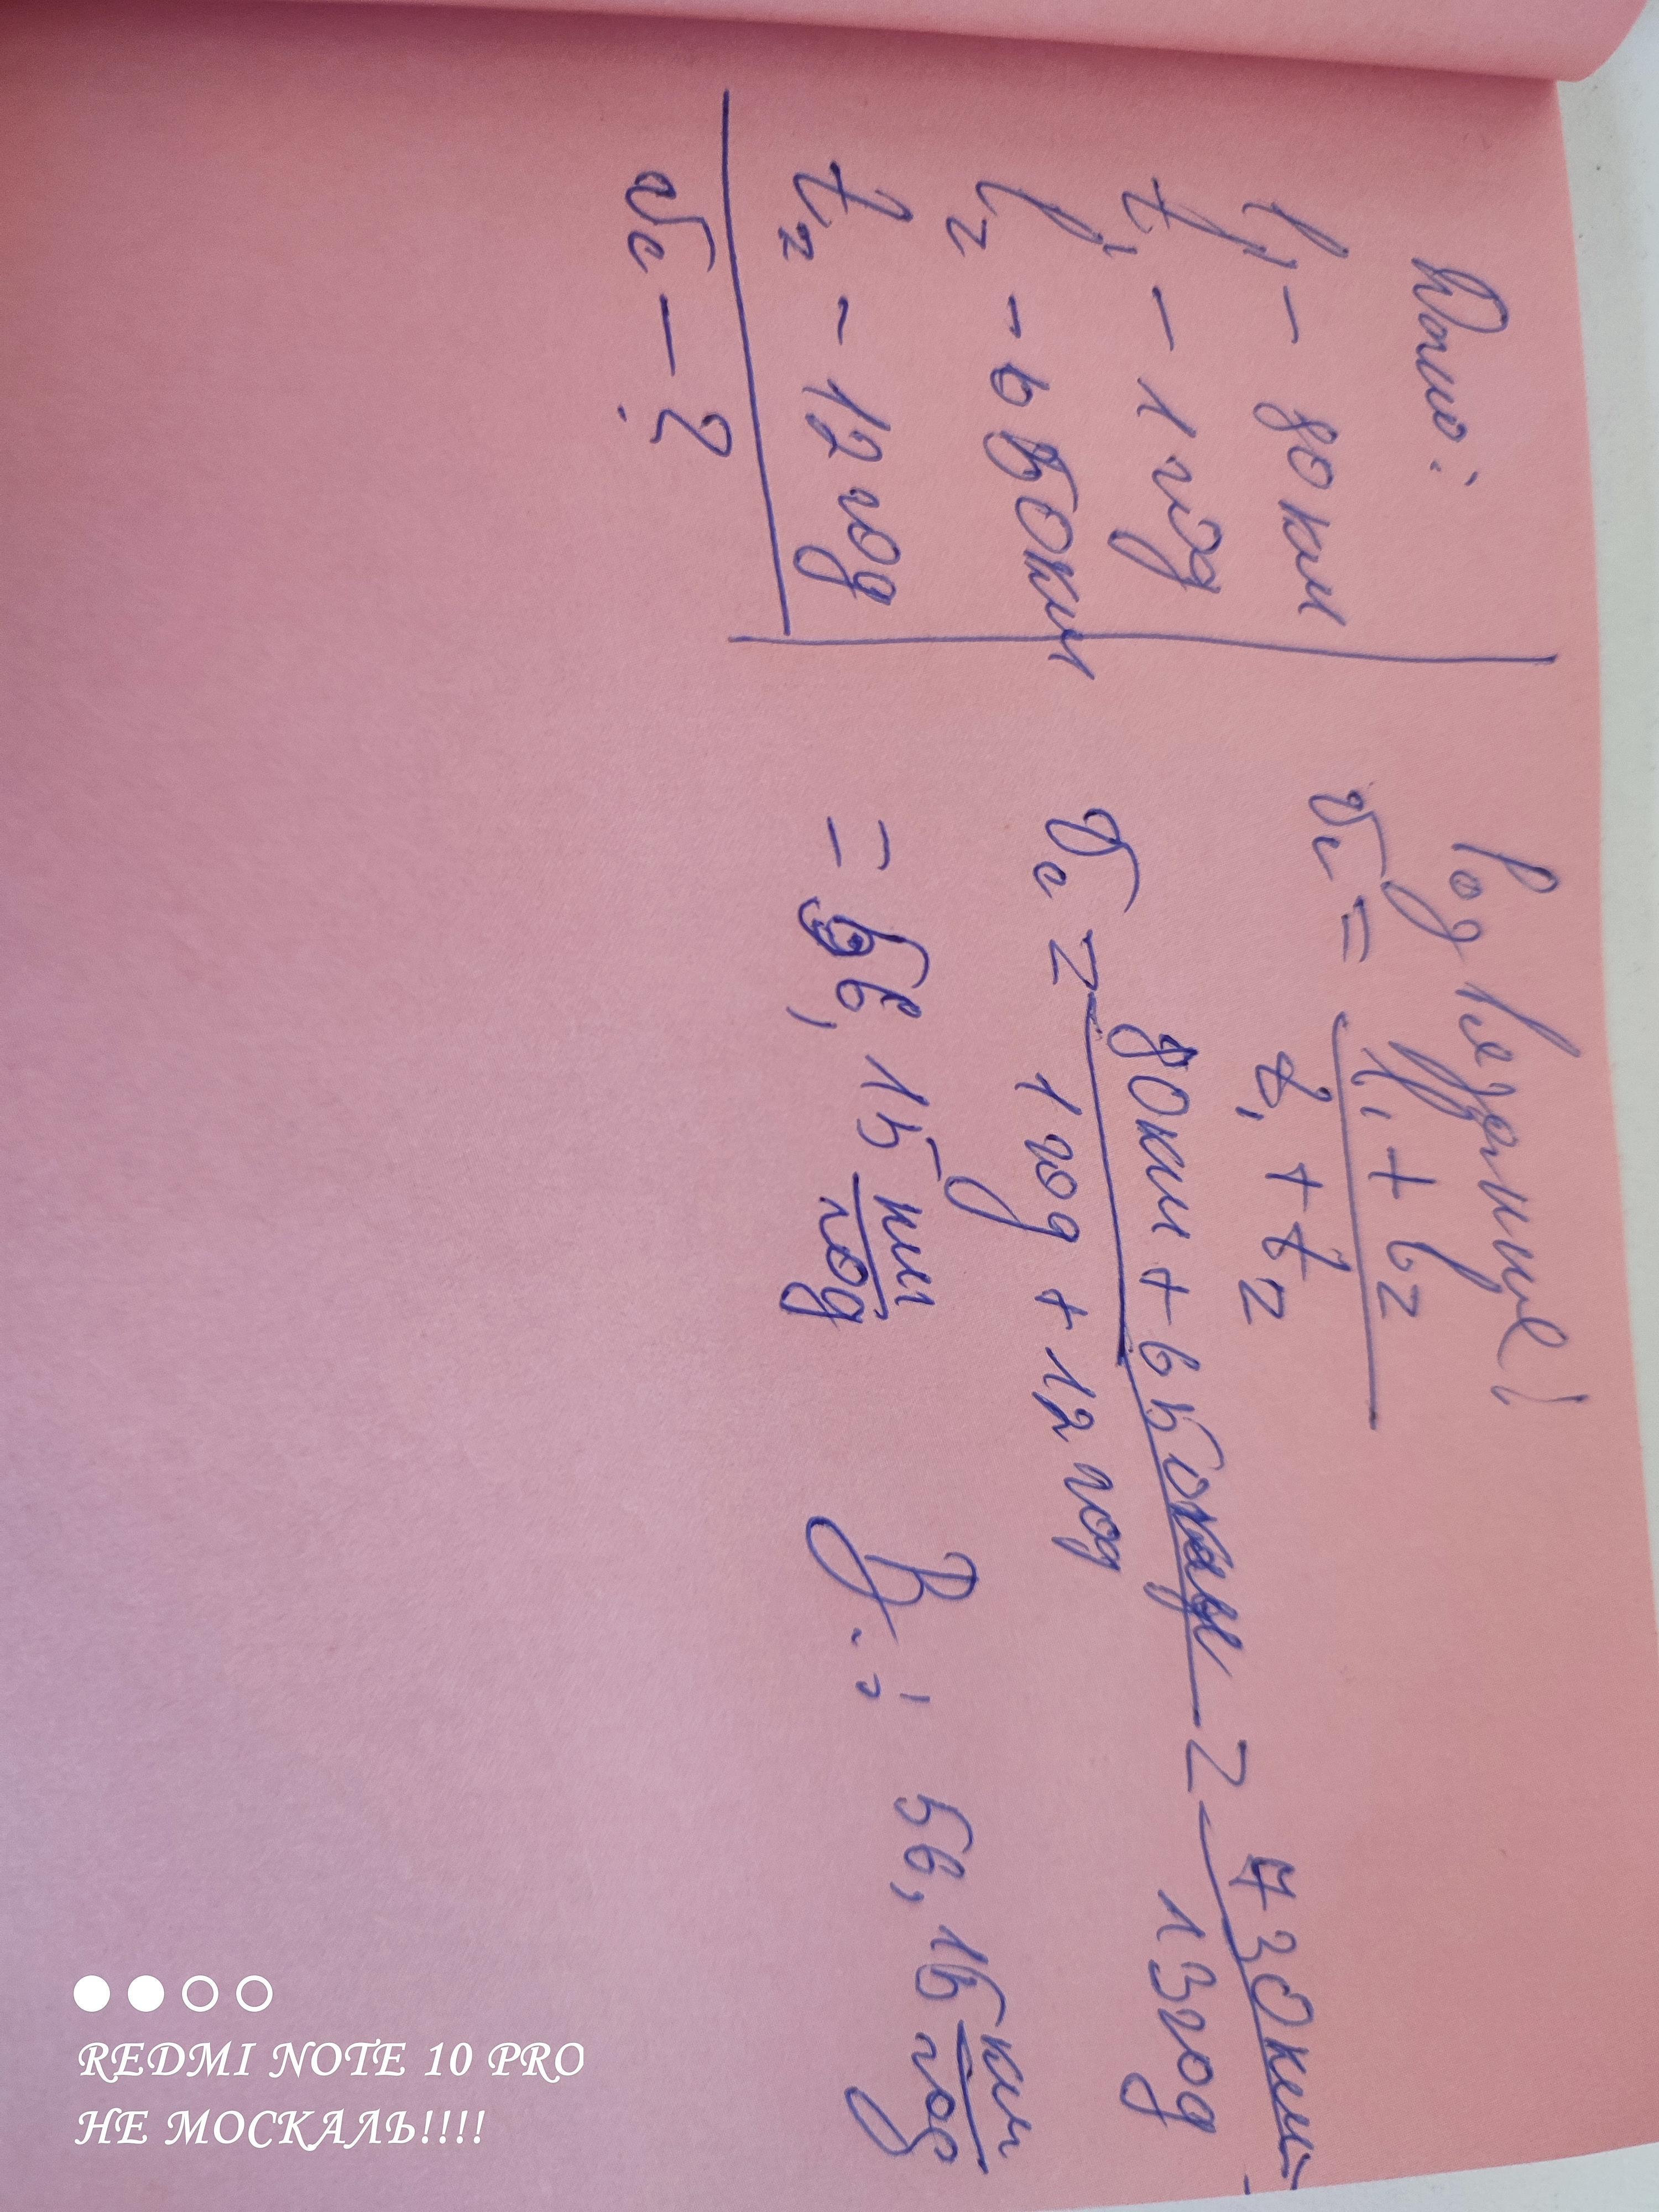 Дано:
l₁ – 80 км
t₁ – 1 год
l₂ – 650 км
t₂ – 12 год
vс – ?
Розв'язання:
vс = l₁ + l₂
t₁ + t₂
vс = 80км + 650км = 730км
1год + 12 год 13год
= 56,15 км
год
В-:  56,15 км
год
REDMI NOTE 10 PRO
НЕ МОСКАЛЬ!!!!